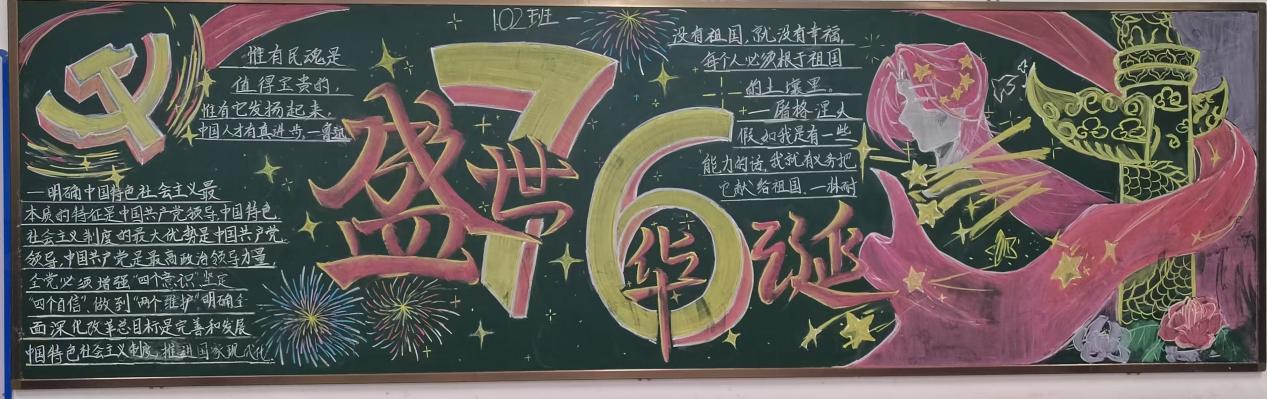 102班
惟有民魂是
值得宝贵的，
惟有它发扬起来，
中国人才有真进步，—鲁迅
—明确中国特色社会主义最
本质的特征是中国共产党领导，中国特色
社会主义制度的最大优势是中国共产党
领导，中国共产党是最高政治领导力量，
全党必须增强“四个意识”坚定
“四个自信”、做到“两个维护”明确全
面深化改革总目标是完善和发展
中国特色社会主义制度，推进国家现代化
盛世华诞
76
没有祖国，就没有幸福，
每个人必须根于祖国
的土壤里。
—屠格涅夫
假如我是有一些
能力的话，我就有义务把
它献给祖国.—林耐